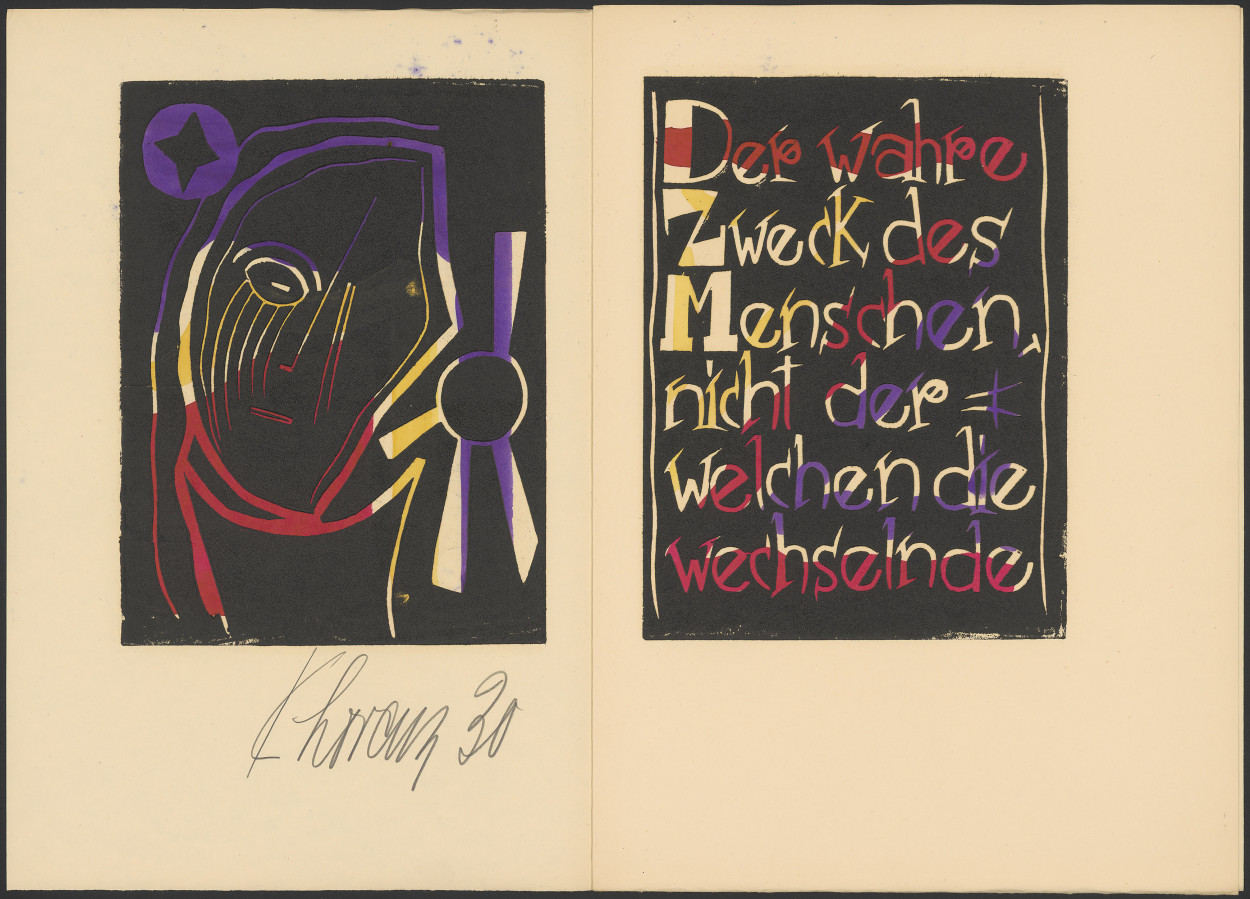 30
Der wahre
Zweck des
Menschen,
nicht der =
welchen die
wechselnde